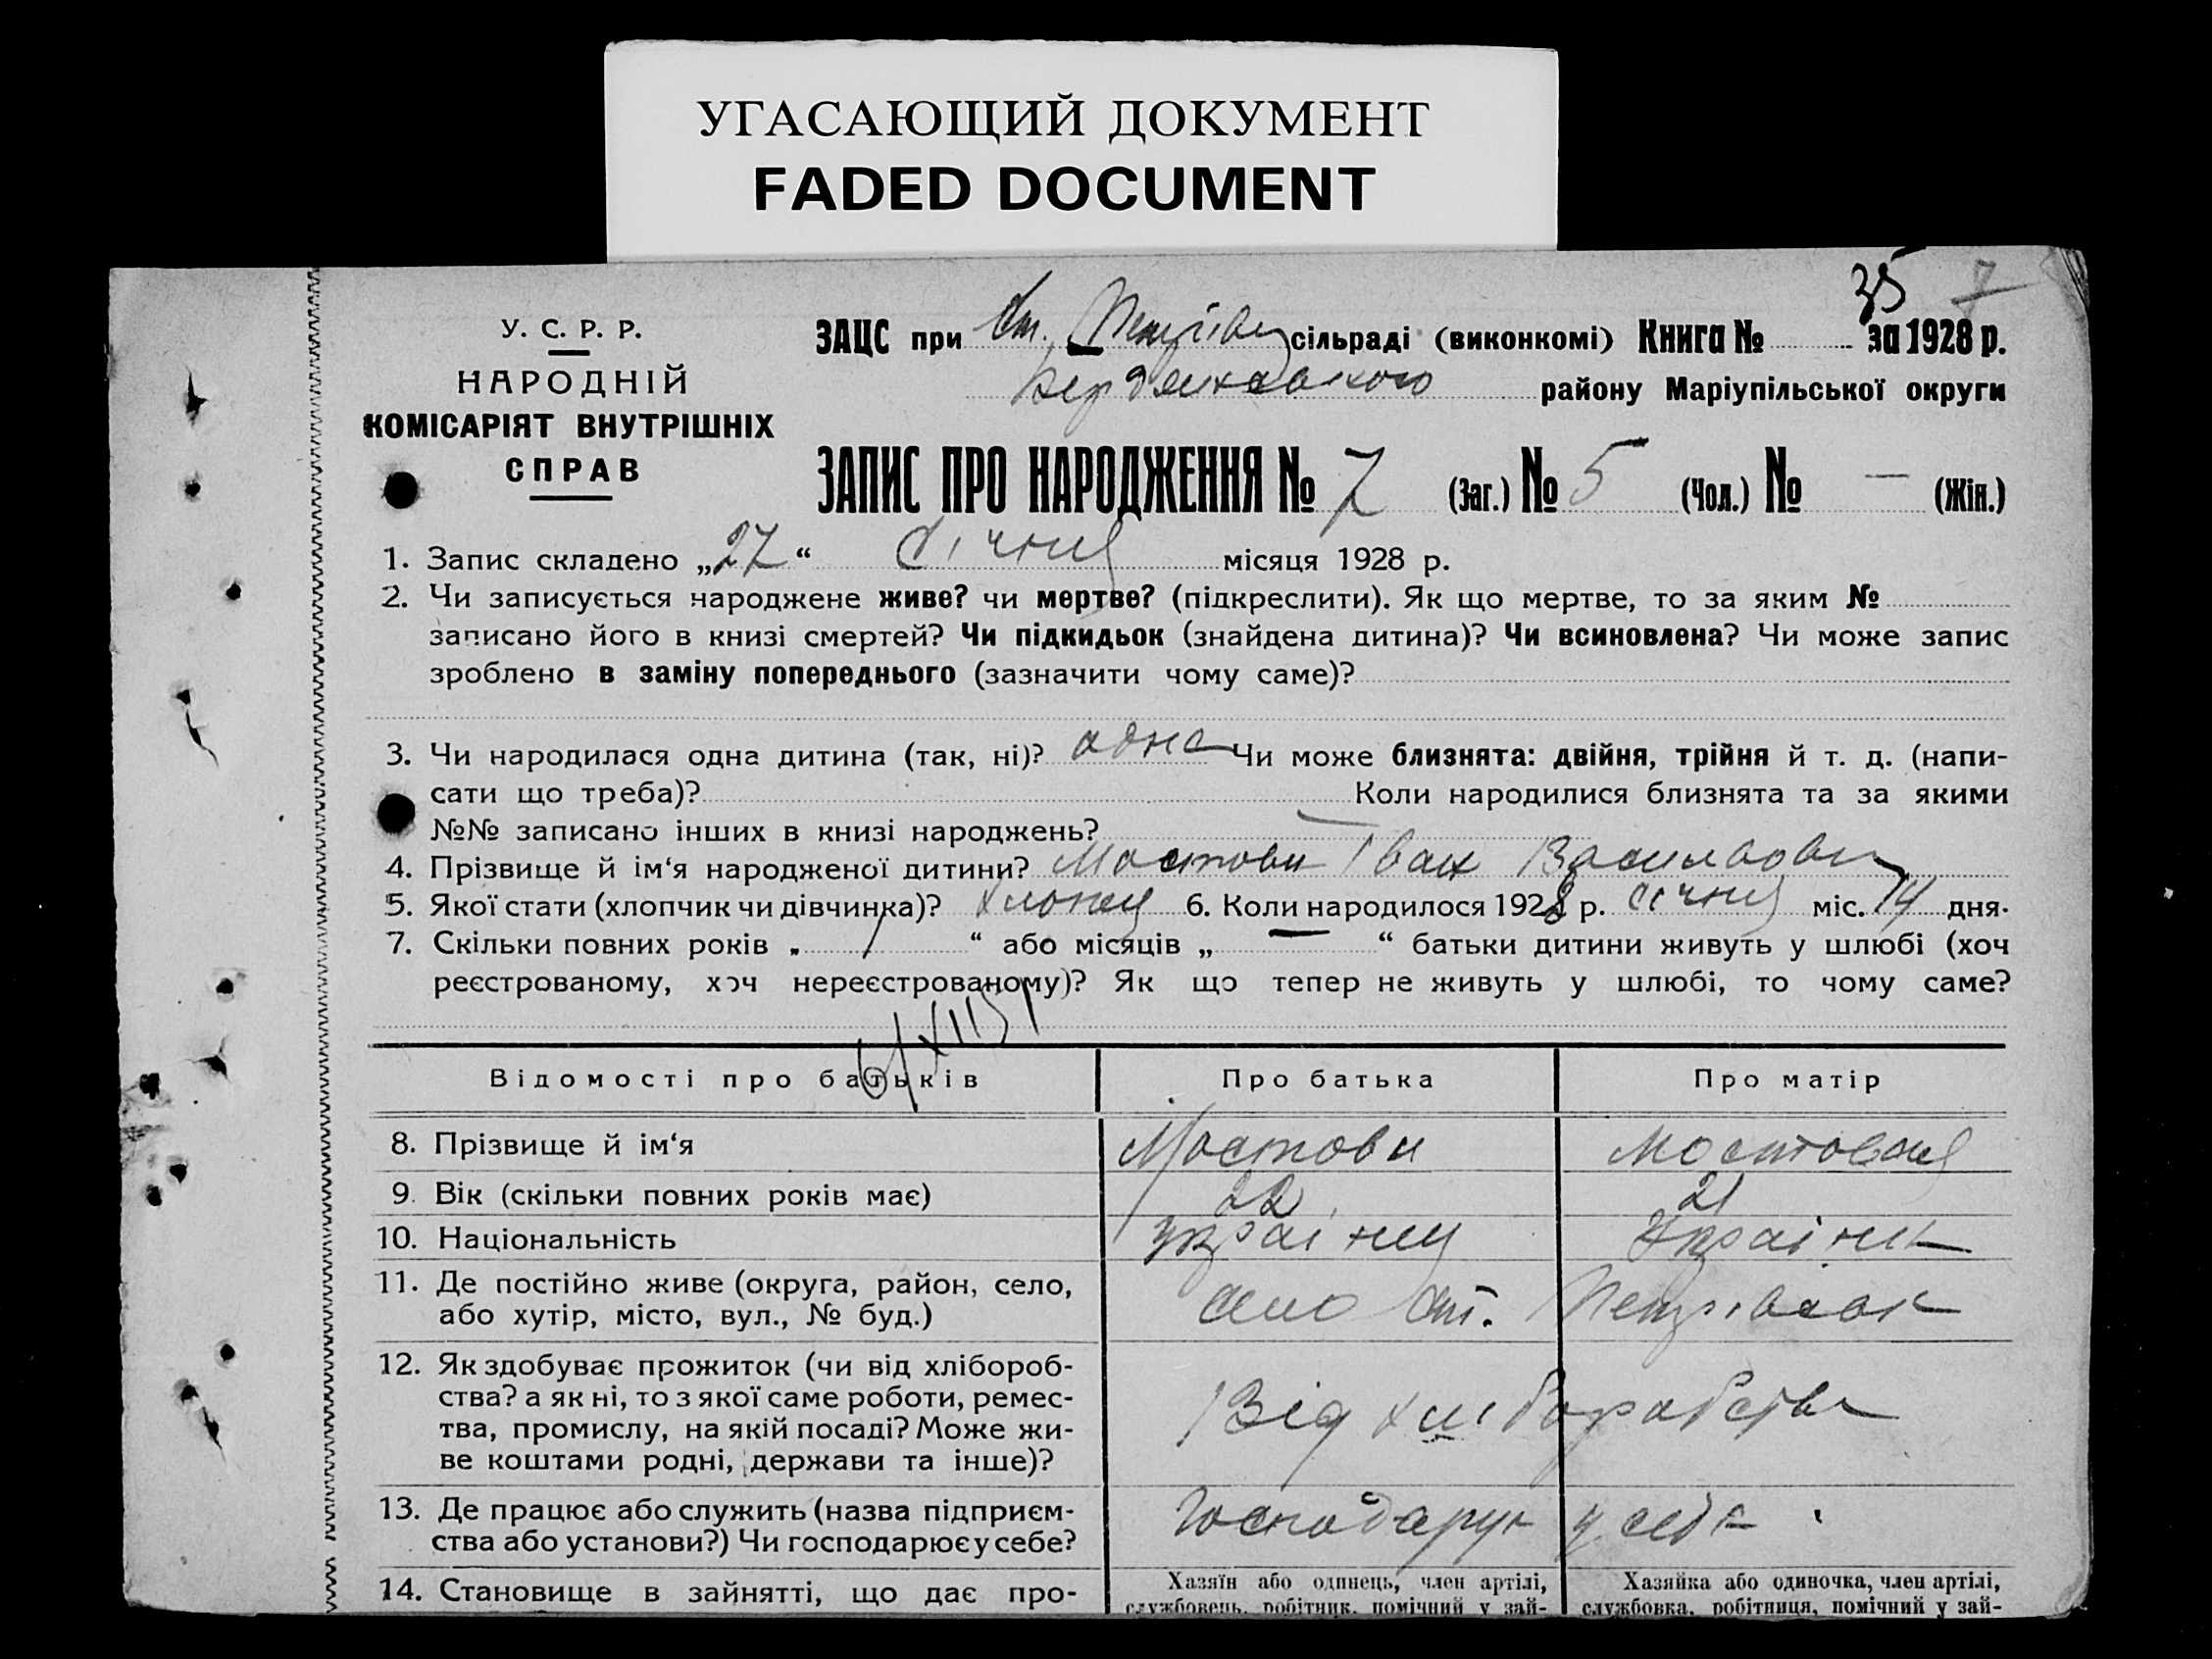 УГАСАЮЩИЙ ДОКУМЕНТ
FADED DOCUMENT
35 7
У. С. Р. Р.
НАРОДНІЙ
КОМІСАРІЯТ ВНУТРІШНІХ
СПРАВ
ЗАЦС при Ст. сільраді (виконкомі) Книга № за 1928 р.
району Маріупільської округи
ЗАПИС ПРО НАРОДЖЕННЯ № 7 (Заг.) № 5 (Чол.) № — (Жін.)
1. Запис складено „27“ січня місяця 1928 р.
2. Чи записується народжене живе? чи мертве? (підкреслити). Як що мертве, то за яким №
записано його в книзі смертей? Чи підкидьок (знайдена дитина)? Чи всиновлена? Чи може запис
зроблено в заміну попереднього (зазначити чому саме)?
3. Чи народилася одна дитина (так, ні)? одна Чи може близнята: двійня, трійня й т. д. (напи-
сати що треба)? Коли народилися близнята та за якими
№№ записано інших в книзі народжень? —
4. Прізвище й ім‘я народженої дитини? Мостови Іван Васильови
5. Якої стати (хлопчик чи дівчинка)? хлопец 6. Коли народилося 1928 р. січня міс. 14 дня.
7. Скільки повних років „ 1 “ або місяців „ — “ батьки дитини живуть у шлюбі (хоч
реєстрованому, хоч нереєстрованому)? Як що тепер не живуть у шлюбі, то чому саме?
Відомості про батьків Про батька Про матір
8. Прізвище й ім‘я Мостови Мостовая
9. Вік (скільки повних років має) 22 21
10. Національність українец Українк
11. Де постійно живе (округа, район, село,
або хутір, місто, вул., № буд.) село Ст. Петрівка
12. Як здобуває прожиток (чи від хлібороб-
ства? а як ні, то з якої саме роботи, ремес-
тва, промислу, на якій посаді? Може жи-
ве коштами родні, держави та інше)? Від хліборобства
13. Де працює або служить (назва підприєм-
ства або установи?) Чи господарює у себе? Господарує у себе
14. Становище в зайнятті, що дає про-
Хазяїн або одинець, член артілі,
службовець, робітник, помічний у зай-
Хазяйка або одиночка, член артілі,
службовка, робітниця, помічний у зай-